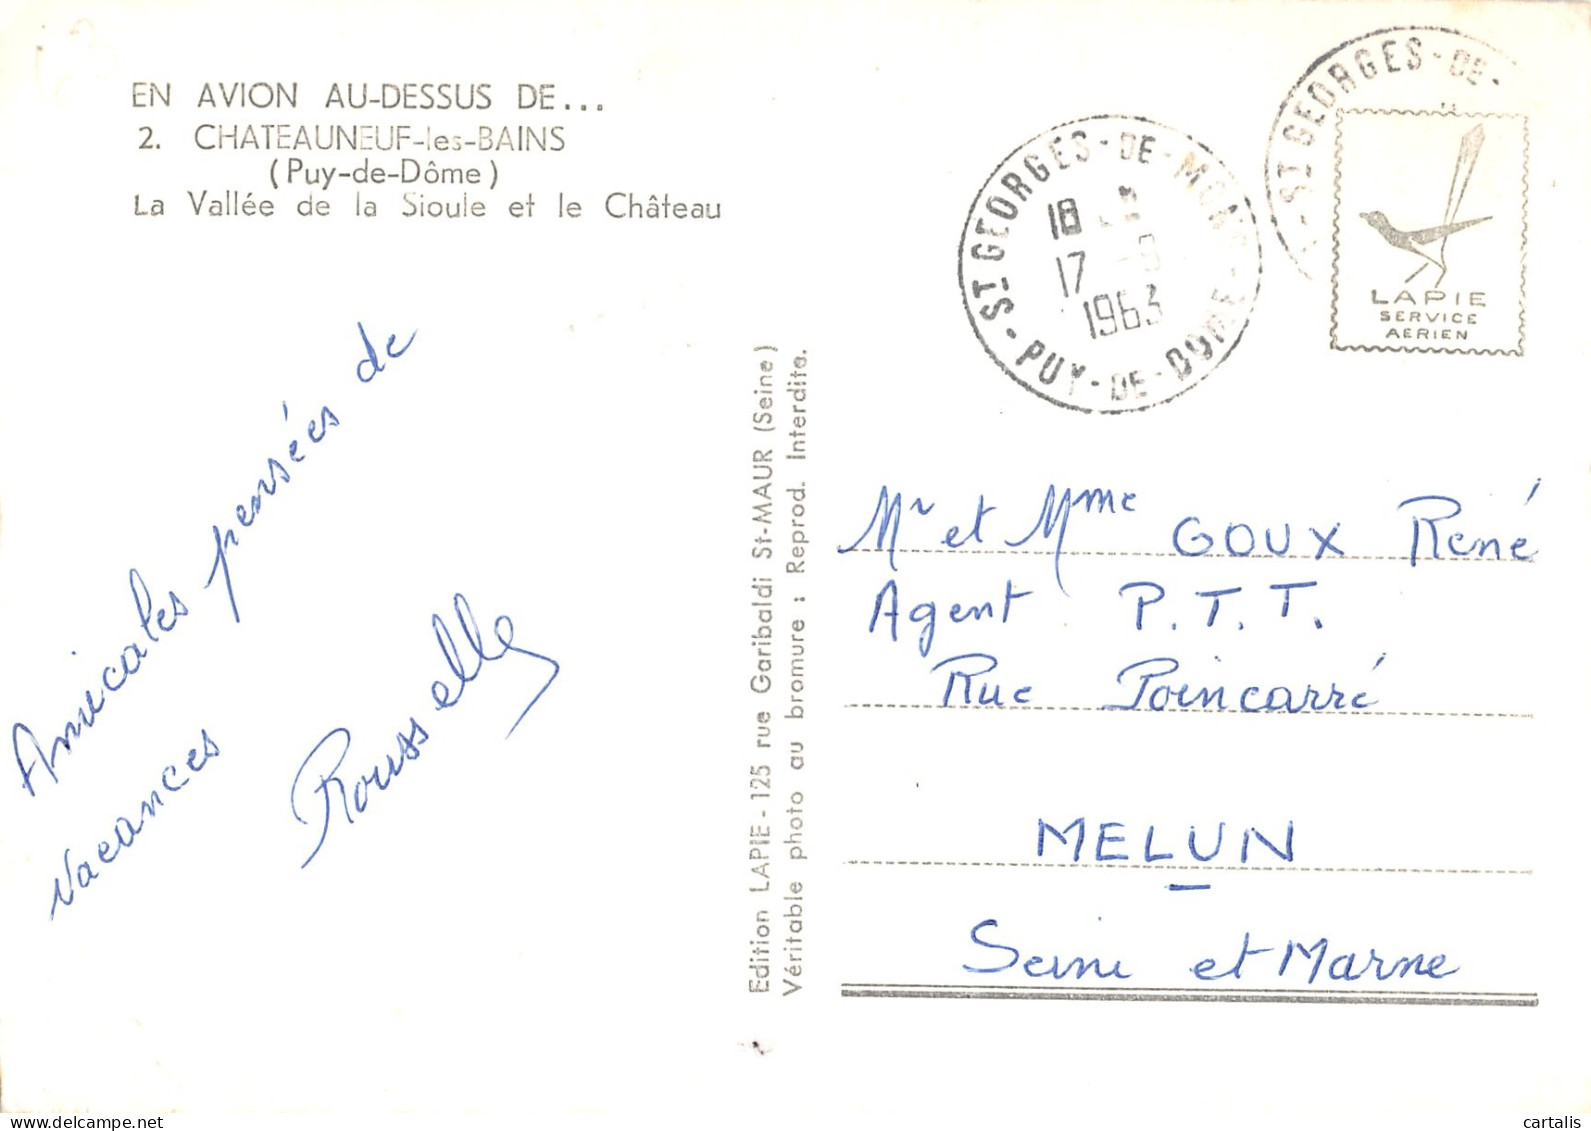 EN AVION AU-DESSUS DE...
2. CHATEAUNEUF-les-BAINS
(Puy-de-Dôme)
La Vallée de la Sioule et le Château
Amicales pensées de
vacances
Rousselle
Edition LAPIE - 125 rue Garibaldi St-MAUR (Seine)
Véritable photo au bromure : Reprod. Interdite.
ST GEORGES-DE-MONS
PUY-DE-DOME
18
17
1963
ST GEORGES-DE-
LAPIE
SERVICE
AERIEN
Mr et Mme GOUX René
Agent P.T.T.
Rue Poincarré
MELUN
Seine et Marne
cartalis
www.delcampe.net